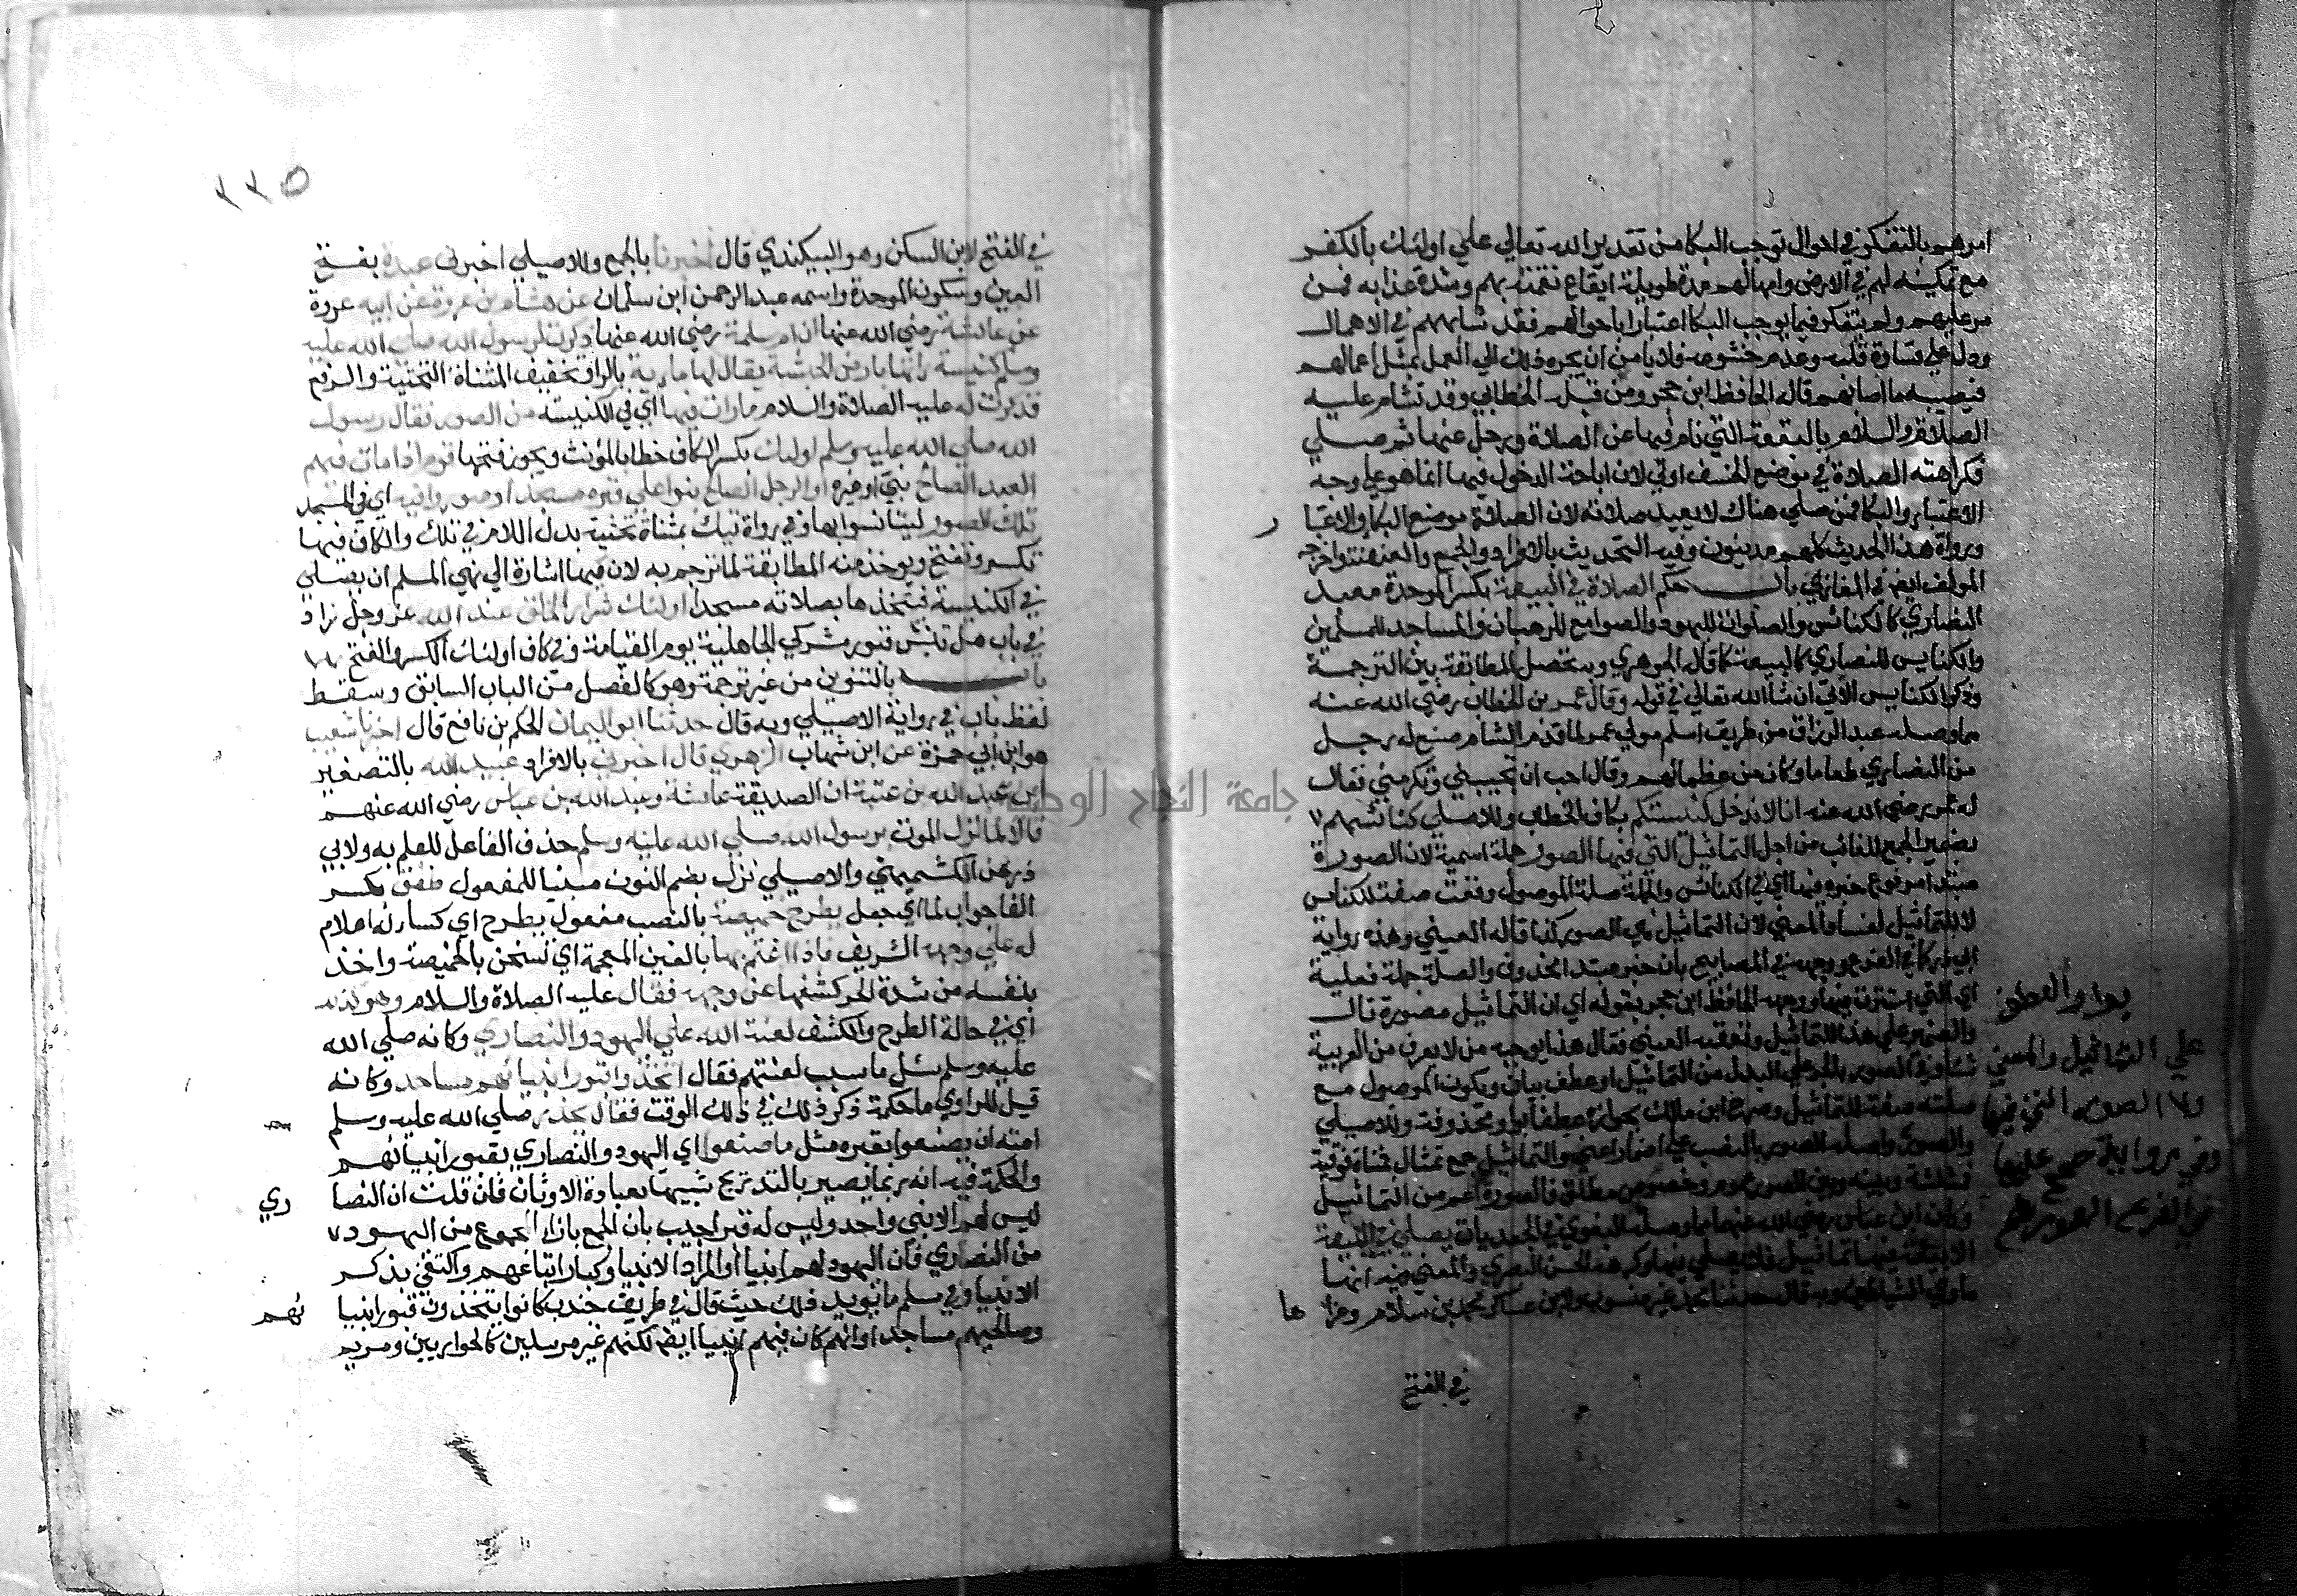 امرهم بالتفكر في احوال توجب البكا من تقدير الله تعالي علي اولئك بالكفر
مع تمكينه لهم في الارض وامهالهم مدة طويلة ايقاع نقمته بهم وشدة عذابه فمن
مر عليهم ولم يتفكر فيما يوجب البكا اعتبارا باحوالهم فقد شابههم في الاهمال
ودل علي قساوة قلبه وعدم خشوعه فلا يامن ان يجره ذلك الي العمل بمثل اعمالهم
فيصيبه ما اصابهم قاله الحافظ ابن حجر ومن قبله الخطابي وقد تشام عليه
الصلاة والسلام بالبقعة التي نام فيها عن الصلاة ورحل عنها ثم صلي
فكراهته الصلاة في موضع الخسف اولي لان اباحة الدخول فيها انما هو علي وجه
الاعتبار والبكا فمن صلي هناك لا يعيد صلاته لان الصلاة موضع البكا والاعتبا ر
ورواة هذا الحديث كلهم مدنيون وفيه التحديث بالافراد والجمع والعنعنة واخرجه
المولف ايضا في المغازي باب حكم الصلاة في البيعة بكسر الموحدة معبد
النصاري كالكنائس والصلوات لليهود والصوامع للرهبان والمساجد للمسلمين
والكنايس للنصاري كالبيعة كما قاله الجوهري وبه تحصل المطابقة بين الترجمة
وذكر الكنايس الاتي ان شا الله تعالي في قوله وقال عمر بن الخطاب رضي الله عنه
مما وصله عبد الرزاق من طريق اسلم مولي عمر لما قدم الشام صنع له رجل
من النصاري طعاما وكان من عظمائهم وقال احب ان تجيبني وتكرمني فقال
له عمر رضي الله عنه انا لا ندخل كنيستكم بكاف الخطاب وللاصيلي كنائسهم
بضمير الجمع للغائب من اجل التماثيل التي فيها الصور جملة اسمية لان الصورة
مبتدا مرفوع خبره فيها اي في الكنائس والجملة صلة الموصول وقعت صفة للكنايس
لا للتماثيل لفساد المعني لان التماثيل هي الصور كذا قاله العيني وهذه رواية
ابي ذر كما في الفرع ووجهه في المصابيح بان خبر مبتدا محذوف والصلة جملة فعلية
اي التي استقرت فيها ووجهه الحافظ ابن حجر بقوله اي ان التماثيل مصورة قال
والضمير علي هذا للتماثيل وتعقبه العيني فقال هذا توجيه من لا يعرف من العربية
شيا وفي الصور بالجر علي البدل من التماثيل او عطف بيان ويكون الموصول مع
صلته صفة للتماثيل وصرح ابن مالك بجوازه عطفا بواو محذوفة وللاصيلي
والصور واصله الصور بالنصب علي اضمار اعني والتماثيل جمع تمثال بمثناة فوقية
فمثلثة وبينه وبين الصور عموم وخصوص مطلق فالصورة اعم من التماثيل
وكان ابن عباس رضي الله عنهما مما وصله البغوي في الجعديات يصلي في البيعة
الا بيعة فيها تماثيل فلا يصلي فيها وكره هذا الحسن البصري والمعني فيه انها
ماوي الشياطين وبه قال حدثنا محمد غير منسوب ولابن عساكر محمد بن سلام وعزا ها
بواو العطف
علي التماثيل والمعني
في الفتح
٢٢٥
في الفتح لابن السكن وهو البيكندي قال اخبرنا بالجمع وللاصيلي اخبرني عبدة بفتح
العين وسكون الموحدة واسمه عبد الرحمن ابن سلمان عن هشام بن عروة عن ابيه عروة
عن عائشة رضي الله عنها ان ام سلمة رضي الله عنها ذكرت لرسول الله صلي الله عليه
وسلم كنيسة راتها بارض الحبشة يقال لها مارية بالراء وتخفيف المثناة التحتية والرفع
فذكرت له عليه الصلاة والسلام ما رات فيها اي في الكنيسة من الصور فقال رسول
الله صلي الله عليه وسلم اوليك بكسر الكاف خطابا لمؤنث ويجوز فتحها قوم اذا مات فيهم
العبد الصالح نبي او غيره او الرجل الصالح بنوا علي قبره مسجدا وصوروا فيه اي في المسجد
تلك الصور ليتانسوا بها وفي رواة تيك بمثناة تحتية بدل اللام في تلك والكاف فيها
تكسر وتفتح ويوخذ منه المطابقة لما ترجم به لان فيها اشارة الي نهي المسلم ان يصلي
في الكنيسة فيتخذها بصلاته مسجدا اولئك شرار الخلق عند الله عز وجل زاد
في باب هل تنبش قبور مشركي الجاهلية يوم القيامة وفي كاف اولئك الكسر والفتح
باب بالتنوين من غير ترجمة وهو كالفصل من الباب السابق وسقط
لفظ باب في رواية الاصيلي وبه قال حدثنا ابو اليمان الحكم بن نافع قال اخبرنا شعيب
هو ابن ابي حمزة عن ابن شهاب الزهري قال اخبرني بالافراد عبيد الله بالتصغير
ابن عبد الله بن عتبة ان الصديقة عائشة وعبد الله بن عباس رضي الله عنهم
قالا لما نزل الموت برسول الله صلي الله عليه وسلم حذف الفاعل للعلم به ولابي
ذر عن الكشميهني والاصيلي نزل بضم النون مبنيا للمفعول طفق بكسر
الفا جواب لما اي جعل يطرح خميصة بالنصب مفعول يطرح اي كساء له اعلام
له علي وجهه الشريف فاذا اغتم بها بالغين المعجمة اي تسخن بالخميصة واخذ
بنفسه من شدة الحر كشفها عن وجهه فقال عليه الصلاة والسلام وهو كذلك
اي في حالة الطرح والكشف لعنة الله علي اليهود والنصاري وكانه صلي الله
عليه وسلم سئل ما سبب لعنتهم فقال اتخذوا قبور انبيائهم مساجد وكانه
قيل للراوي ما حكمة ذكر ذلك في ذلك الوقت فقال يحذر صلي الله عليه وسلم
امته ان يصنعوا بقبره مثل ما صنعوا اي اليهود والنصاري بقبور انبيائهم
والحكمة فيه انه ربما يصير بالتدريج شبيها بعبادة الاوثان فان قلت ان النصا ري
ليس لهم الا نبي واحد وليس له قبر اجيب بان الجمع بازاء المجموع من اليهود
من النصاري فان اليهود لهم انبيا او المراد الانبيا وكبار اتباعهم واكتفي بذكر
الانبيا وفي مسلم ما يويد ذلك حيث قال في طريق جندب كانوا يتخذون قبور انبيا ئهم
وصالحيهم مساجد او انهم كان فيهم انبيا ايضا لكنهم غير مرسلين كالحواريين ومريم
جامعة النجاح الوطنية